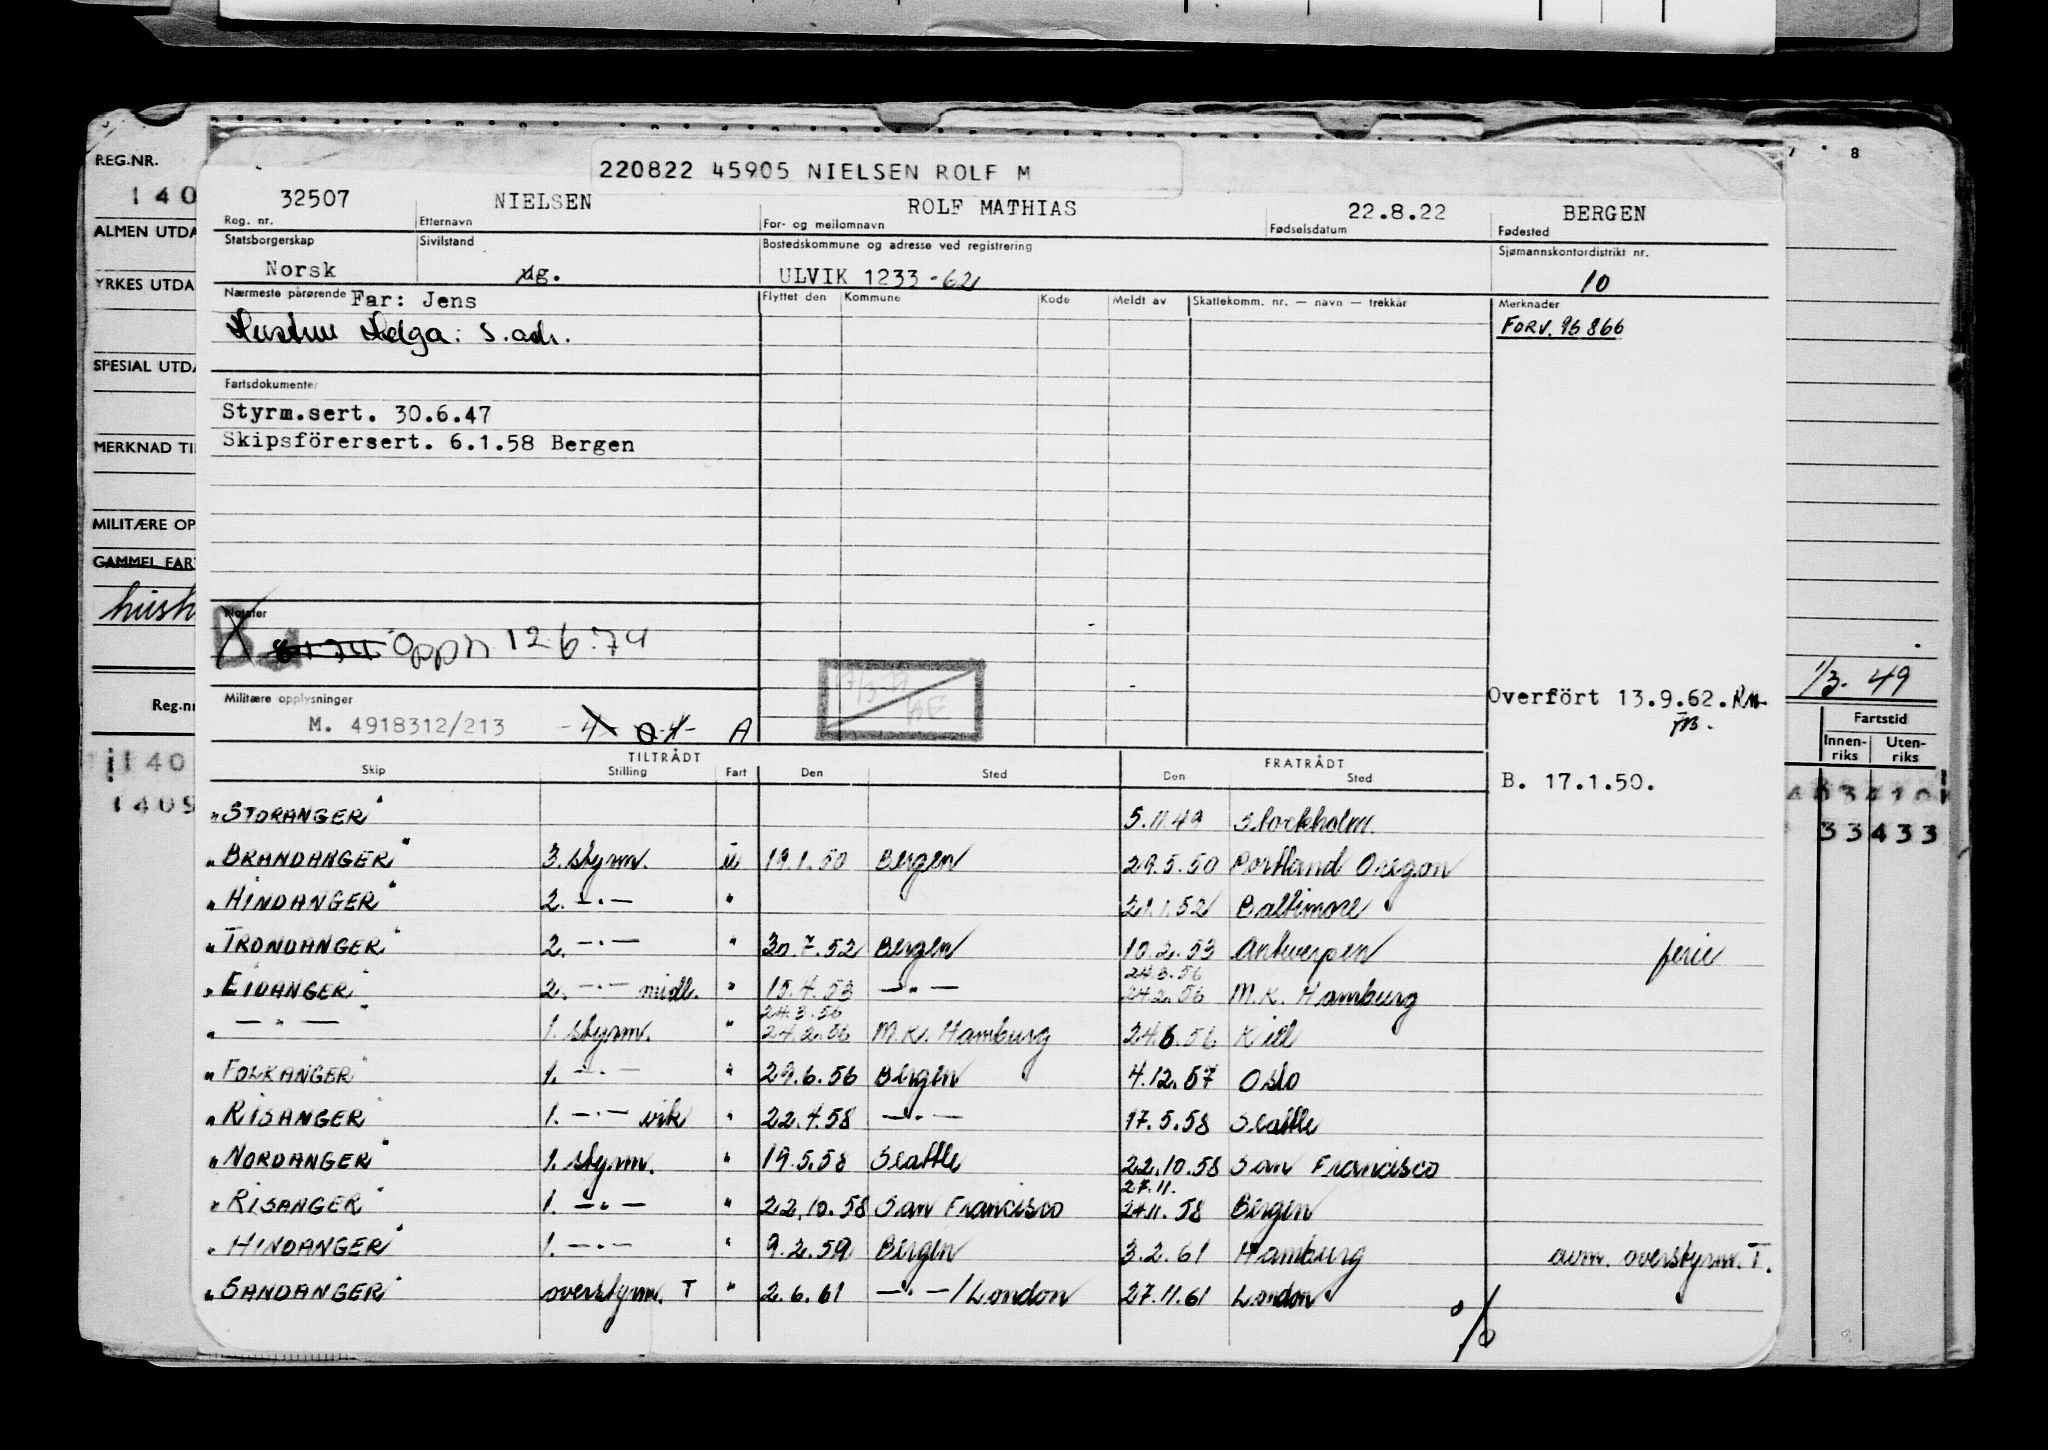 7 8
REG.NR.
140
220822 45905 NIELSEN ROLF M
32507 NIELSEN ROLF MATHIAS 22.8.22 BERGEN
Reg. nr. Etternavn For- og mellomnavn Fødselsdatum Fødested
ALMEN UTDA
Statsborgerskap Sivilstand Bostedskommune og adresse ved registrering Sjømannskontordistrikt nr.
Norsk ug. ULVIK 1233 -62 10
YRKES UTDA
Nærmeste pårørende Far: Jens Flyttet den Kommune Kode Meldt av Skattekomm. nr. — navn — trekkår Merknader
Hustru Helga: s. adr. FORV. 96866
SPESIAL UTDA
Fartsdokumenter
Styrm.sert. 30.6.47
Skipsförersert. 6.1.58 Bergen
MERKNAD TI
MILITÆRE OP
GAMMEL FAR
hush
Notater
Oppn. 12.6.74
1/3. 49
Militære opplysninger Overfört 13.9.62.
M. 4918312/213 A
Reg.nr Fartstid
Innen-riks Uten-riks
TILTRÅDT FRATRÅDT
Skip Stilling Fart Den Sted Den Sted B. 17.1.50.
140
1409 33433
"STORANGER" 5.11.49 Stockholm.
"BRANDANGER" 3. styrm. u 19.1.50 Bergen 29.5.50 Portland Oregon
"HINDANGER" 2. —"— " 21.1.52 Baltimore
"TRONDANGER" 2. —"— " 30.7.52 Bergen 10.2.53 Antwerpen ferie
24.3.56
"EIDANGER" 2. —"— midl. " 15.4.53 —"— 24.2.56 M.K. Hamburg
24.3.56
" —"— " 1. styrm. " 24.2.56 M.K. Hamburg 24.6.56 Kiel
"FOLKANGER" 1. —"— " 29.6.56 Bergen 4.12.57 Oslo
"RISANGER" 1. —"— vik " 22.4.58 —"— 17.5.58 Seattle
"NORDANGER" 1. styrm. " 19.5.58 Seattle 22.10.58 San Francisco
27.11.
"RISANGER" 1. —"— " 22.10.58 San Francisco 24.11.58 Bergen
"HINDANGER" 1. —"— " 9.2.59 Bergen 3.2.61 Hamburg avm. overstyrm. T.
"SANDANGER" overstyrm. T " 2.6.61 —"— / London 27.11.61 London
%